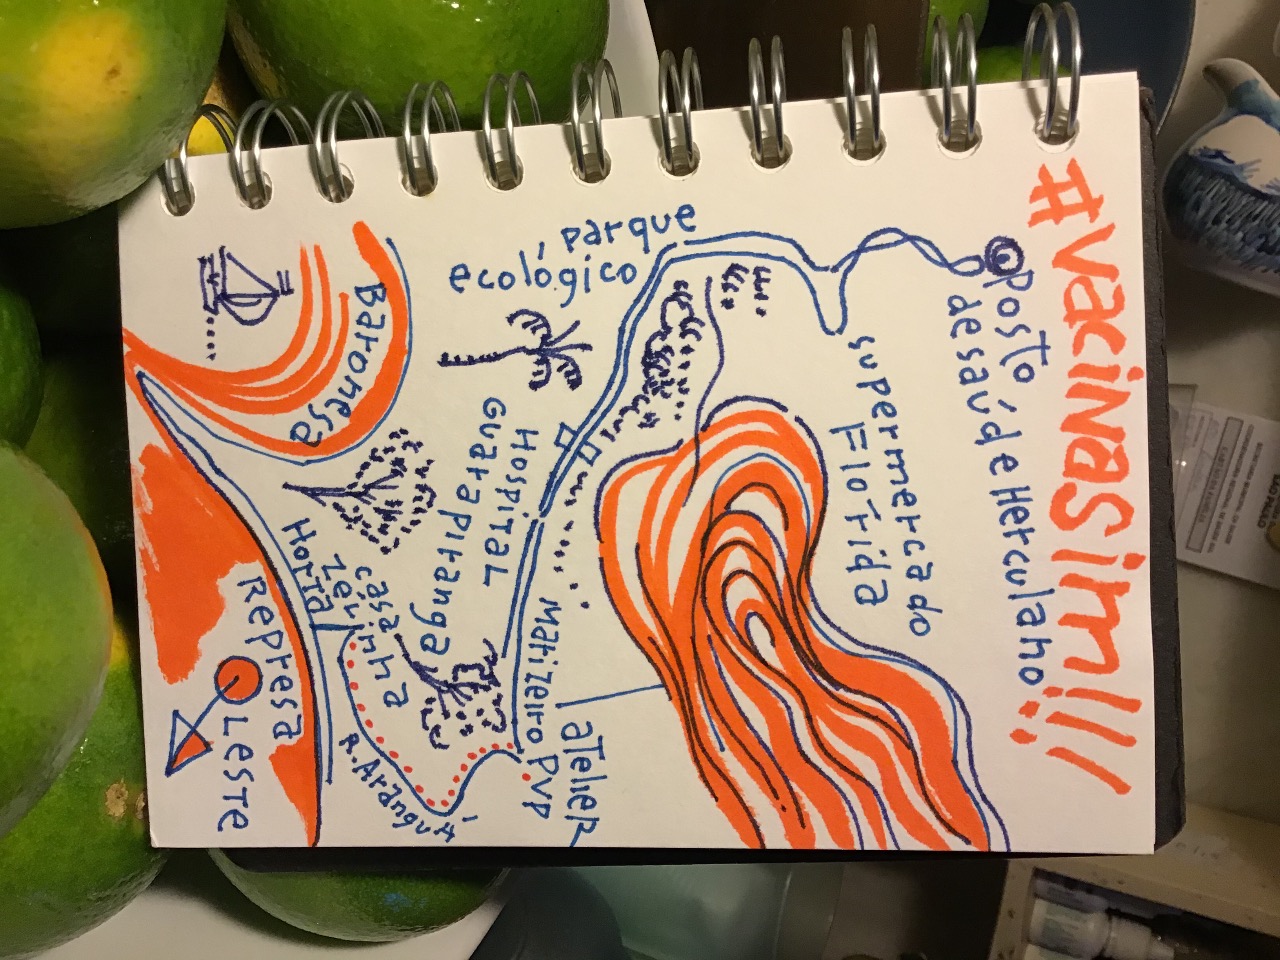 #vacinasim!!!
Posto
de saúde Herculano
supermercado
Florida
parque
ecológico
Hospital
Guarapiranga
Matizeiro PVP
aTelier
Baronesa
casinha
Zévi
Horta
R. Aranguá
Represa
LesTe